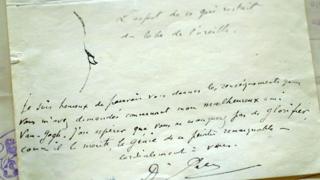 L'aspect de ce qui restait
du lobe de l'oreille
Je suis heureux de pouvoir vous donner les renseignements que
vous m'avez demandés concernant mon malheureux ami
Van-Gogh. J'ose espérer que vous ne manquerez pas de glorifier,
comme il le mérite le génie de ce peintre remarquable,
cordialement à vous.
Dr Rey